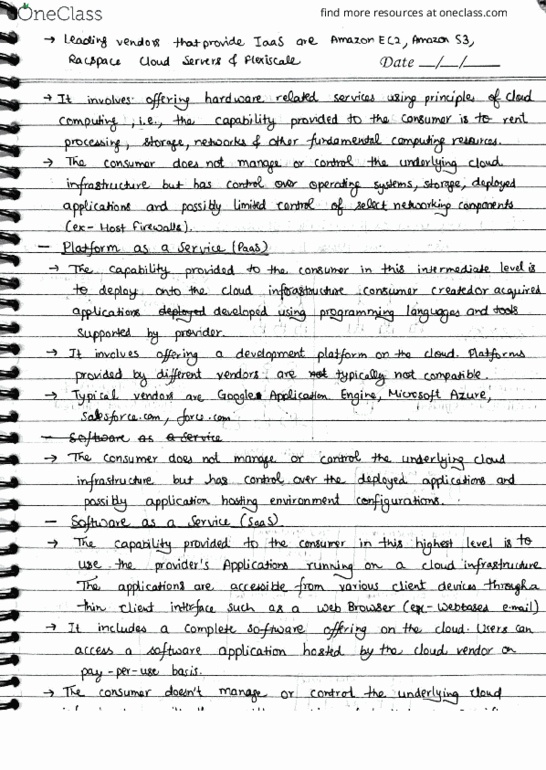 OneClass
find more resources at oneclass.com
→ Leading vendors that provide IaaS are Amazon EC2, Amazon S3,
Racspace Cloud Servers & Flexiscale
Date __/__/____
→ It involves offering hardware related services using principles of cloud
computing, i.e., the capability provided to the consumer is to rent
processing, storage, networks & other fundamental computing resources.
→ The consumer does not manage or control the underlying cloud
infrastructure but has control over operating systems, storage, deployed
applications and possibly limited control of select networking components
(ex- Host Firewalls).
— Platform as a Service (PaaS)
→ The capability provided to the consumer in this intermediate level is
to deploy onto the cloud infrastructure consumer created or acquired
applications deployed developed using programming languages and tools
supported by provider.
→ It involves offering a development platform on the cloud. Platforms
provided by different vendors are not typically not compatible
→ Typical vendors are Google Application Engine, Microsoft Azure,
salesforce.com, force.com
— Software as a Service
→ The consumer does not manage or control the underlying cloud
infrastructure but has control over the deployed applications and
possibly application hosting environment configurations.
— Software as a Service (SaaS)
→ The capability provided to the consumer in this highest level is to
use the provider's Applications running on a cloud infrastructure
The applications are accessible from various client devices through a
thin client interface such as a web Browser (ex- webbased e-mail)
→ It includes a complete software offering on the cloud. Users can
access a software application hosted by the cloud vendor on
pay-per-use basis.
→ The consumer doesn't manage or control the underlying cloud